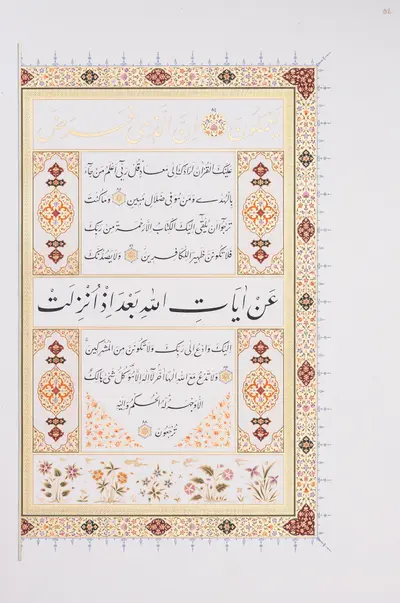 يَعْمَلُونَ اِنَّ الَّذى فَرَضَ
عَلَيْكَ الْقُرْانَ لَرادُّكَ اِلى مَعادٍ قُلْ رَبّى اَعْلَمُ مَنْ جاءَ
بِالْهُدى وَمَنْ هُوَ فى ضَلالٍ مُبينٍ وَما كُنْتَ
تَرْجُوا اَنْ يُلْقى اِلَيْكَ الْكِتابُ اِلاّ رَحْمَةً مِنْ رَبِّكَ
فَلا تَكُونَنَّ ظَهيرًا لِلْكافِرينَ وَلا يَصُدُّنَّكَ
عَنْ اياتِ اللهِ بَعْدَ اِذْ اُنْزِلَتْ
اِلَيْكَ وَادْعُ اِلى رَبِّكَ وَلا تَكُونَنَّ مِنَ الْمُشْرِكينَ
وَلا تَدْعُ مَعَ اللهِ اِلهًا اخَرَ لا اِلهَ اِلاّ هُوَ كُلُّ شَىْءٍ هالِكٌ
اِلاّ وَجْهَهُ لَهُ الْحُكْمُ وَاِلَيْهِ
تُرْجَعُونَ